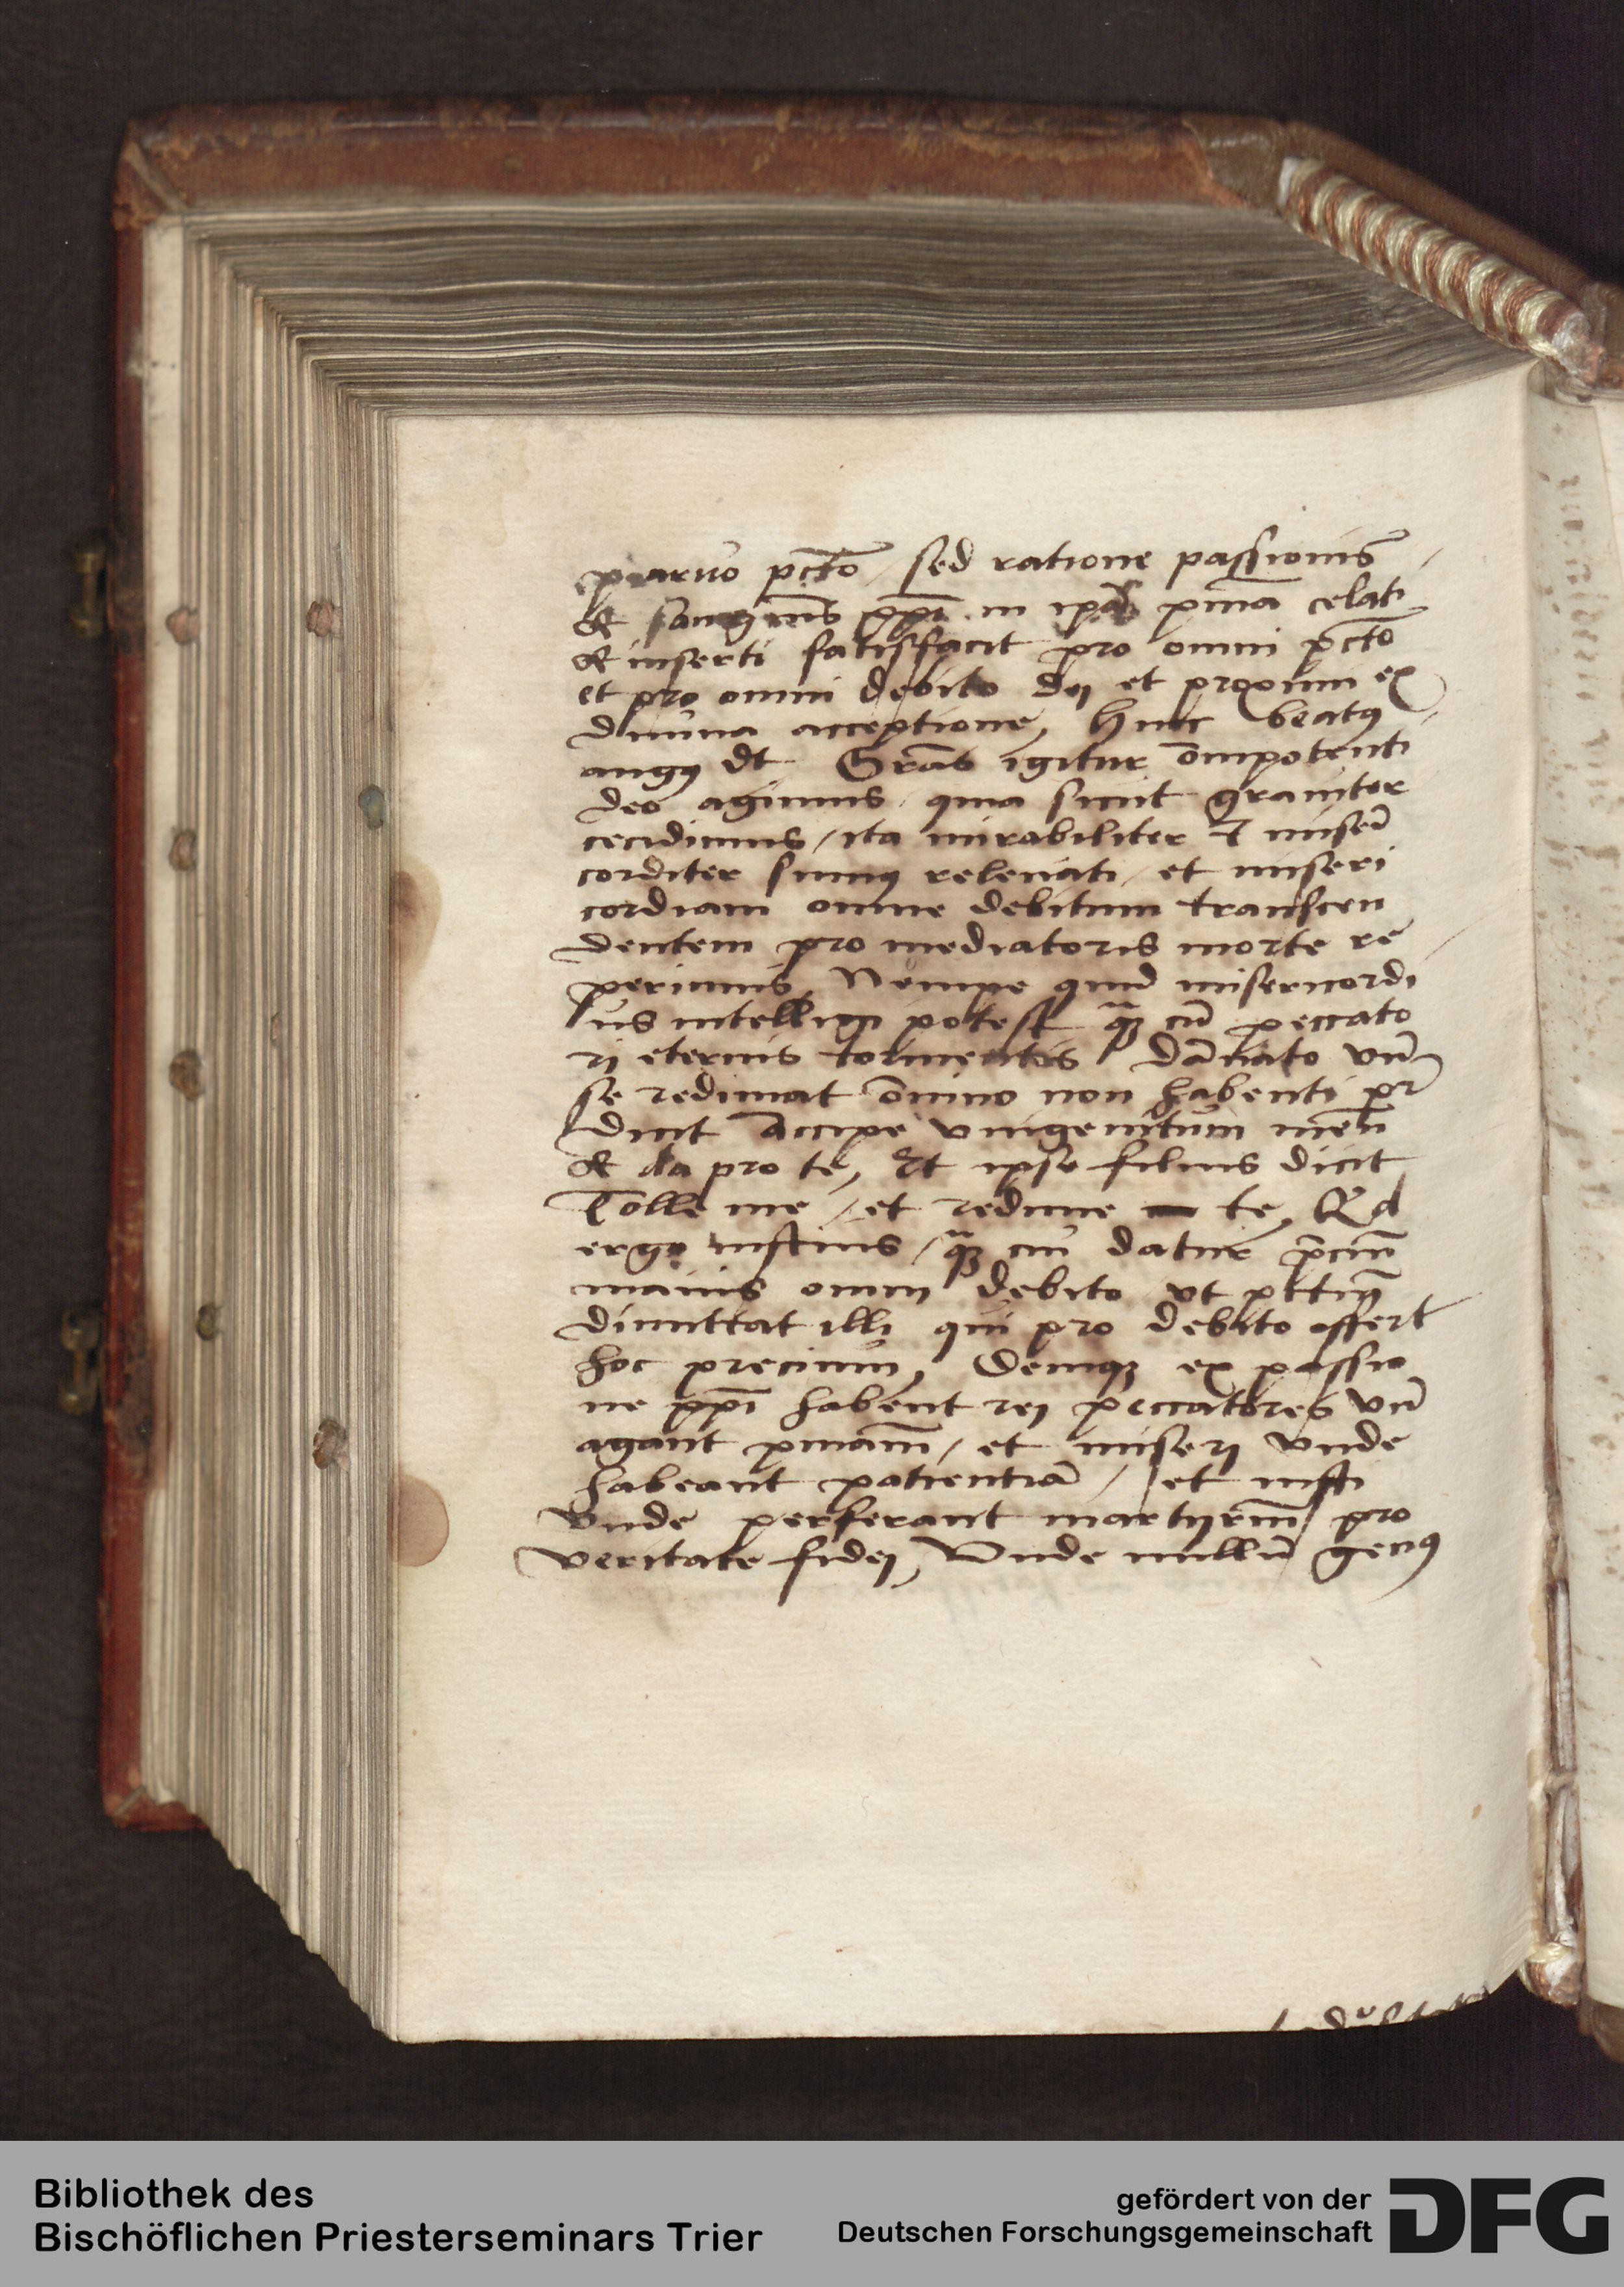 paruo pctō / sed ratione passionis
& sanguinis xpi in ipsa pnīa celati
& inserti satisfacit pro omni pctō
et pro omni debito dei et proximi ex
diuina acceptione, Hinc beatus
augus dt Grās igitur ōmpotenti
deo agimus / quia sicut grauiter
cecidimus / ita mirabiliter & miseri
corditer sumus releuati / et miseri
cordiam omne debitum transcen
dentem pro mediatoris morte re
perimus, Nempe quid misericordi
us intelligi potest quā cū peccato
ri eternis tormentis dānato vn̄
se redimat ōmino non habenti pr̄
dicit Accipe vnigenitum meū
& da pro te, Et ipse filius dicit
Tolle me / et redime te, Qd
ergo iustius / quā cū datur preciū
maius omni debito vt
dimittat illi qui pro debito offert
hoc precium, Denique ex passio
ne xpi habent rei peccatores vn̄
agant pniam / et miseri vnde
habeant patientiā / et iusti
vnde perferant martyriū pro
veritate fidei, Vnde nullū genus
Bibliothek des
Bischöflichen Priesterseminars Trier
gefördert von der
Deutschen Forschungsgemeinschaft
DFG